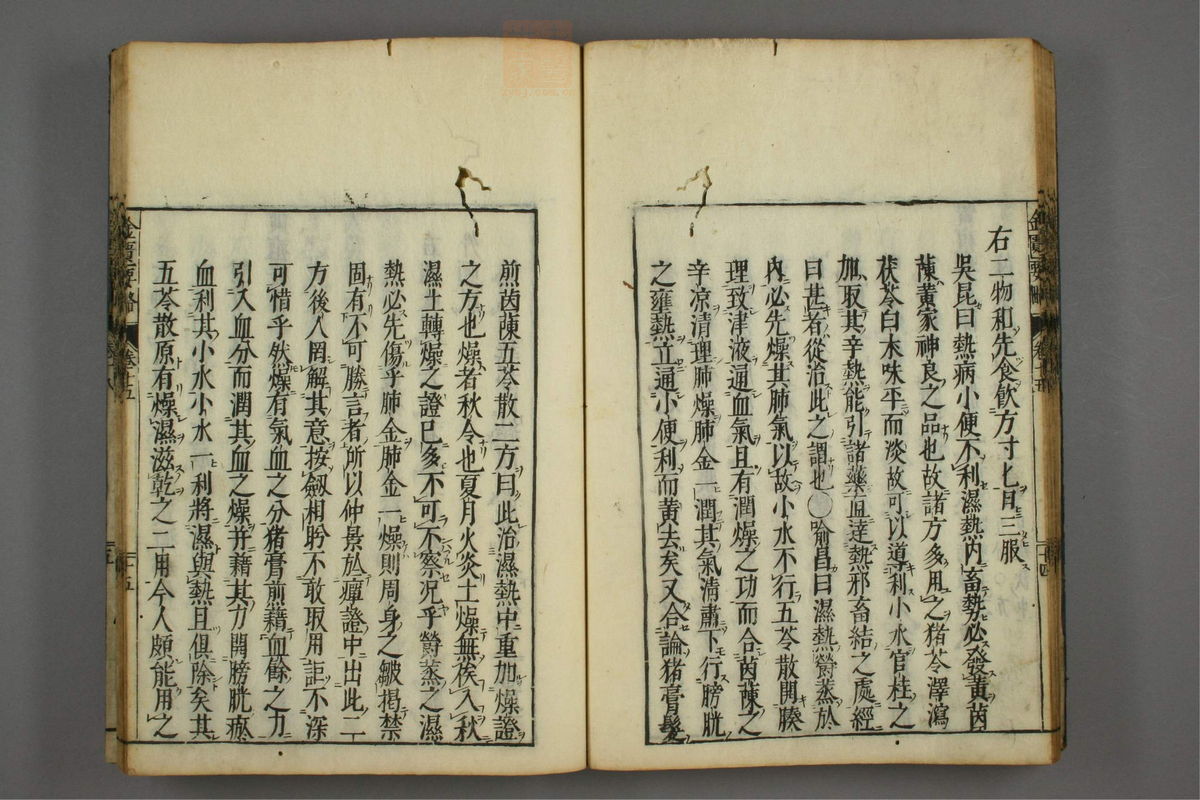 右二物和先食飲方寸匕日三服
吳昆曰熱病小便不利濕熱內畜勢必發黃茵
蔯黃家神良之品也故諸方多用之猪苓澤瀉
茯苓白朮味平而淡故可以導利小水官桂之
加取其辛熱能引諸藥直達熱邪畜結之處經
曰甚者從治此之謂也○喻昌曰濕熱欝蒸於
內必先燥其肺氣以故小水不行五苓散開腠
理致津液通血氣且有潤燥之功而合茵蔯之
辛凉清理肺燥肺金一潤其氣清肅下行膀胱
之壅熱立通小便利而黃去矣又合論猪膏髮
煎茵蔯五苓散二方曰此治濕熱中重加燥證
之方也燥者秋令也夏月火炎土燥無俟入秋
濕土轉燥之證已多不可不察况乎欝蒸之濕
熱必先傷乎肺金肺金一燥則周身之皺揭禁
固有不可勝言者所以仲景於癉證中出此二
方後人罔解其意按劔相盻不敢取用詎不深
可惜乎然燥有氣血之分猪膏煎藉血餘之力
引入血分而潤其血之燥并藉其力開膀胱瘀
血利其小水小水一利將濕與熱且俱除矣其
五苓散原有燥濕滋乾之二用今人頗能用之
金匱要略
卷十五